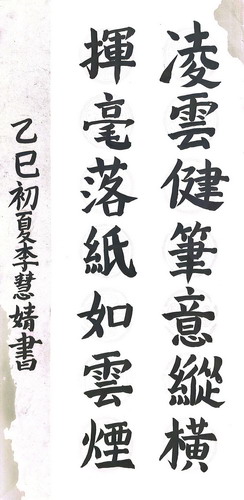 凌雲健筆意縱橫
揮毫落紙如雲煙
乙巳初夏李慧婧書